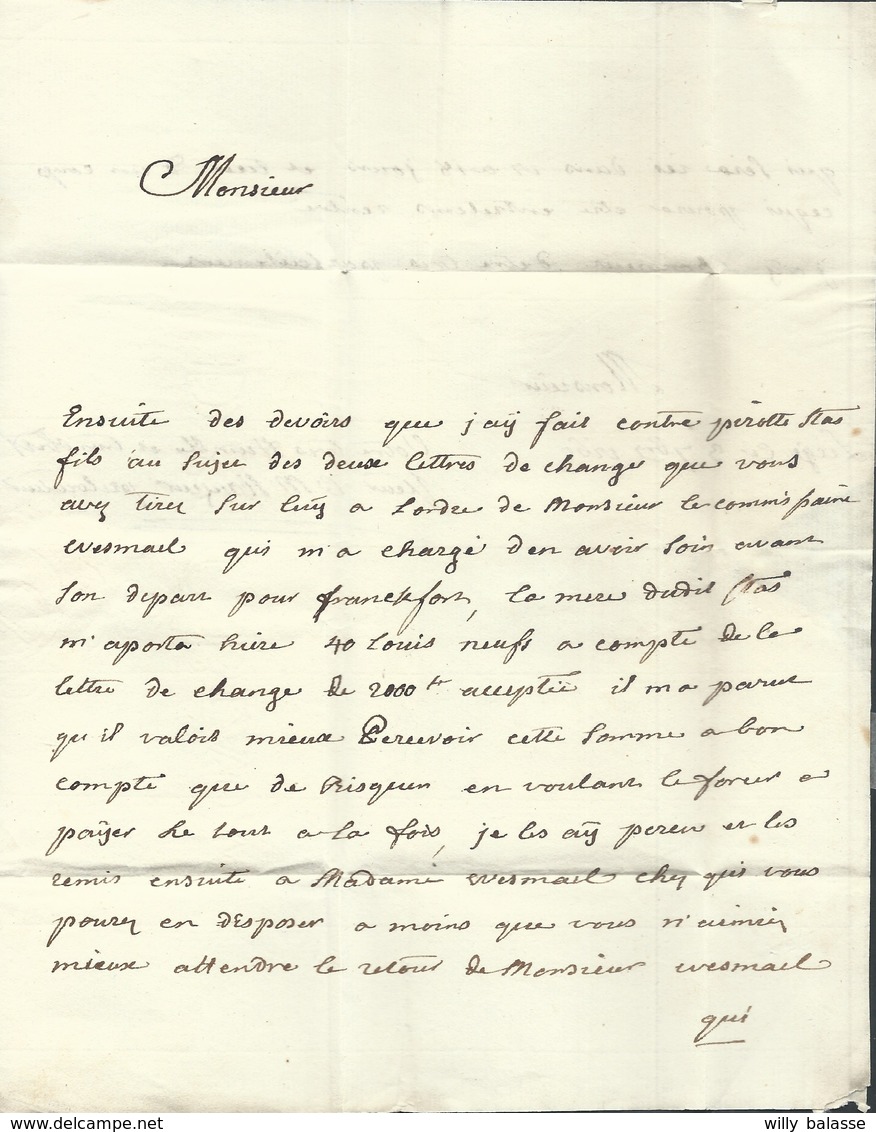 Monsieur
Ensuite des devoirs que j aÿ fait contre pirotte stas
fils au sujet des deux lettres de change que vous
avez tirez sur luÿ a Lordre de Monsieur le commissaire
wesmael qui m a chargé d'en avoir soin avant
son depart pour franckfort, la mere dudit stas
m'aporta hiere 40 Louis neufs a compte de la
lettre de change de 2000 ll acceptée il m a parut
qu il valoit mieux Percevoir cette somme a bon
compte que de Risquer en voulant le forcer a
paÿer le tout a la fois, je les aÿ percu et les
remis ensuite a Madame wesmael chez qui vous
pourez en desposer a moins que vous n'aimiez
mieux attendre le retour de Monsieur wesmael
qui
www.delcampe.net
willy balasse